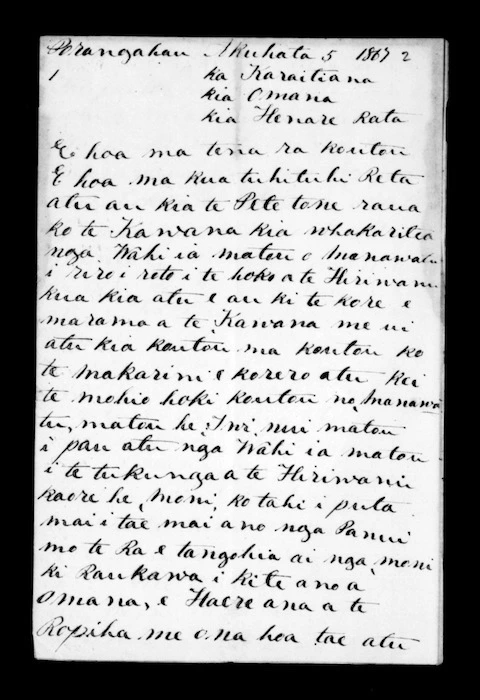 Porangahau Akuhata 5 1867 2
1 ka Karaitiana
kia Omana
kia Henare Rata
E hoa ma tena ra koutou
E hoa ma kua tuhituhi Reta
atu au kia te Pete tone raua
ko te Kawana kia whakaritea
nga Wahi ia matou o Manawatu
i riro i roto i te hoko a te Hiriwanu
kua kia atu e au ki te kore e
marama a te Kawana me ui
atu kia koutou ma koutou ko
te Makarini e korero atu kei
te mohio hoki koutou no Manawa
tu, matou he Iwi nui matou
i pau atu nga Wahi ia matou
i te tukunga a te Hiriwanu
kaore he Moni kotahi i puta
mai i tae mai ano nga Panui
mo te Ra e tangohia ai nga moni
ki Raukawa i kite ano a
Omana, e Haere ana a te
Ropiha me ona hoa tae atu